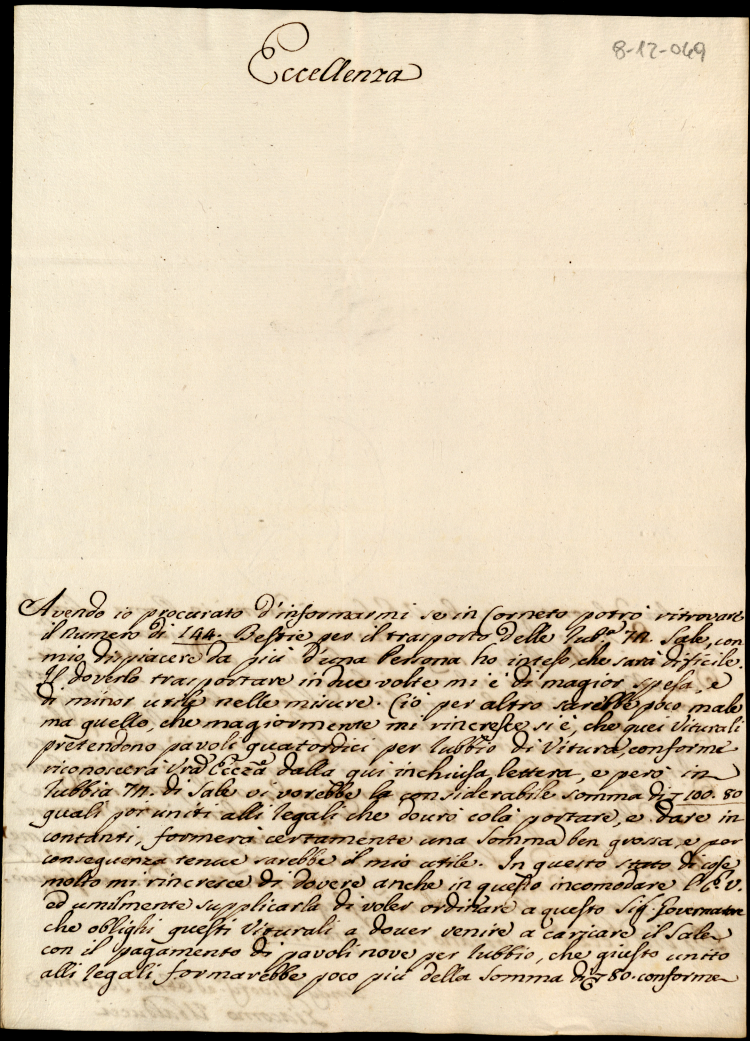 8-12-049
Eccellenza
Avendo io procurato d'informarmi se in Corneto potrò ritrovare
il numero di 144. Bestie per il trasporto delle Rub.ᵃ 72. Sale, con
mio dispiacere da più d'una Persona ho inteso, che sarà dificile.
Il doverlo trasportare in due volte mi è di magior spesa, e
di minor utile nelle misure. Ciò per altro sarebbe poco male
ma quello, che magiormente mi rincresce si è, che quei Viturali
pretendono pavoli quatordici per Rubbio di Vitura, conforme
riconoscerà Vrà Eccza dalla qui inchiusa lettera, e però in
Rubbia 72. di Sale vi vorebbe la considerabile somma di 100. 80
quali poi uniti alli Regali che dourò colà portare, e dare in
contanti, formerà certamente una somma ben grossa, e per
consequenza tenue sarebbe il mio utile. In questo stato di cose
molto mi rincresce di dovere anche in questo incomodare l'E. V.
ed umilmente supplicarla di voler ordinare a questo Sig.ʳ Governatore
che oblighi questi Viturali a dover venire a caricare il Sale
con il pagamento di pavoli nove per Rubbio, che giusto unito
alli Regali formarebbe poco più della somma di 80. conforme